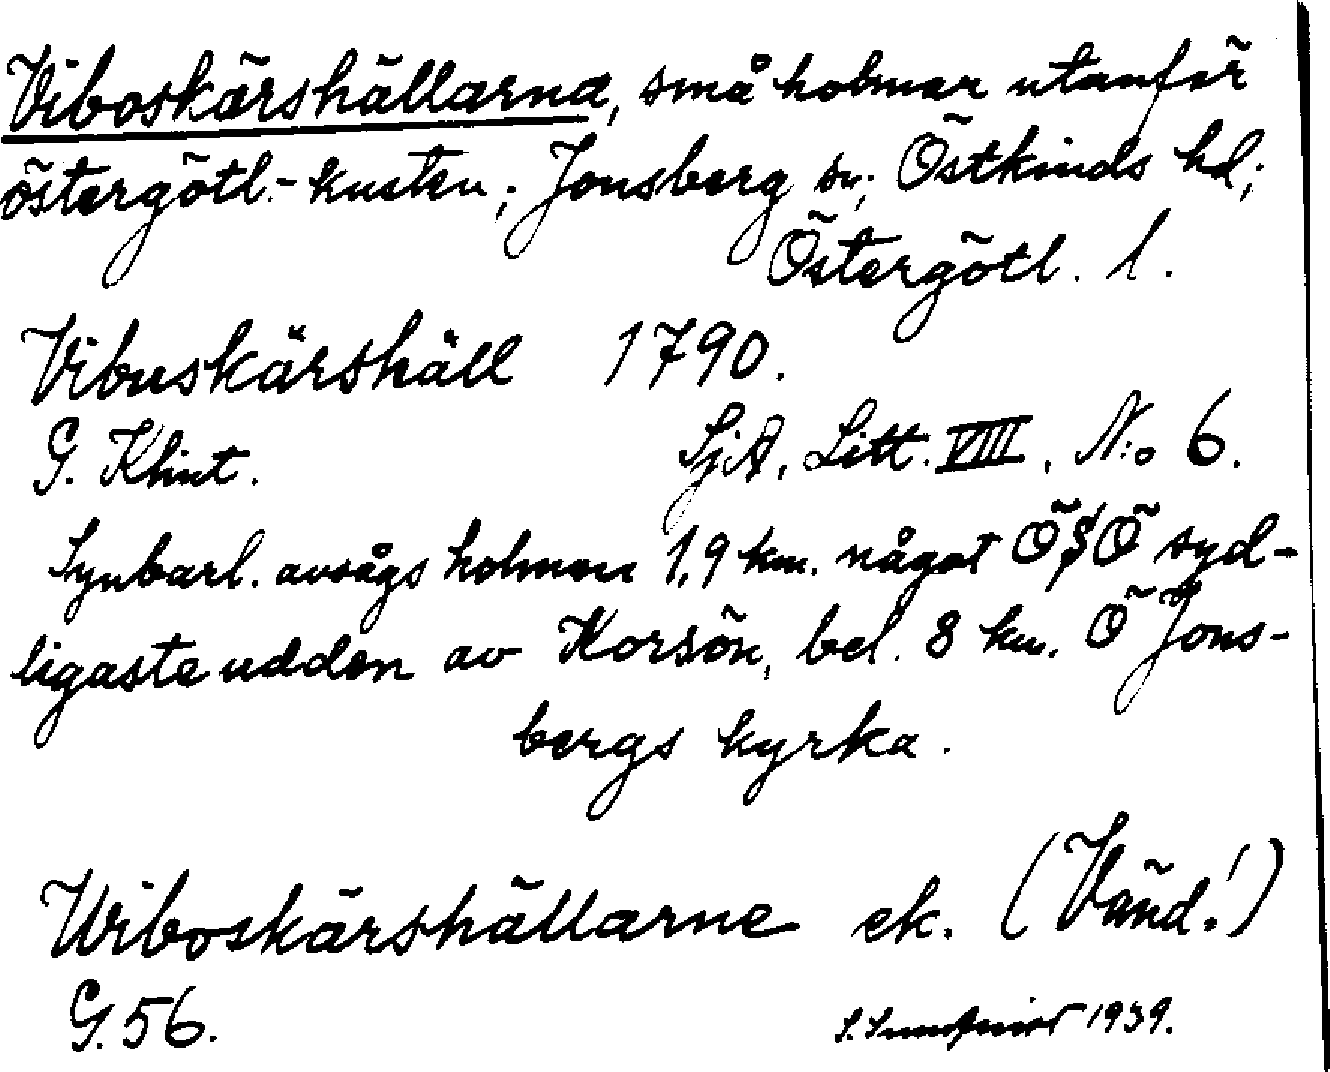 Viboskärshällarna, små holmar utanför
östergötl.-kusten; Jonsberg sn; Östkinds hd;
Östergötl. l.
Vibuskärshäll 1790.
G. Klint. SjA, Litt. VIII, N:o 6.
Synbarl. avsågs holmen 1,9 km. något ÖSÖ syd-
ligaste udden av Korsön, bel. 8 km. Ö Jons-
bergs kyrka.
Wiboskärshällarne ek. (Vänd!)
G. 56. 1939.